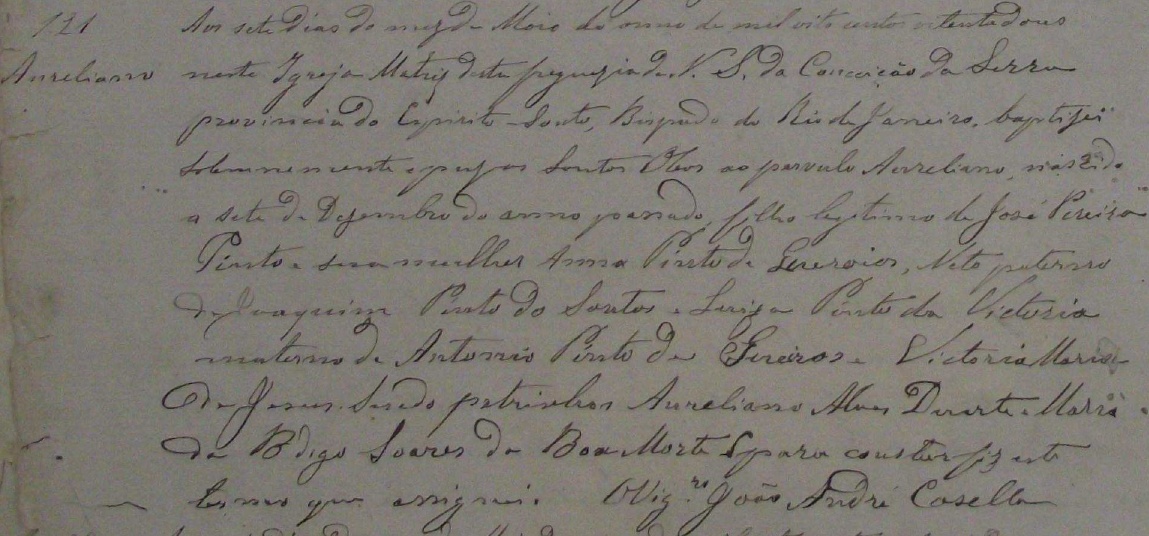 121 Aos sete dias do mez de Maio do anno de mil oito centos oitenta e dous
Aureliano nesta Igreja Matriz desta freguezia de N. S. da Conceição da Serra
provincia do Espirito-Santo, Bispado do Rio de Janeiro, baptizei
solemnemente e puz os Santos Oleos ao parvulo Aureliano, nascido
a sete de Dezembro do anno passado, filho legitimo de José Pereira
Pinto e sua mulher Anna Pinto de, Neto paterno
de Joaquim Pinto do Santos e Luiza Pinto da Victoria
materno de Antonio Pinto de e Victoria Maria
de Jesus. Sendo padrinhos Aureliano Alves Duarte e Maria
da Soares da Boa Morte E para constar fiz este
termo que assignei. O Vig.ro João André Casella